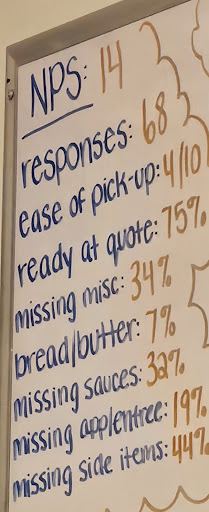 NPS: 14
responses: 68
ease of pick-up: 4/10
ready at quote: 75%
missing misc: 34%
bread/butter: 7%
missing sauces: 32%
missing app/entree: 19%
missing side items: 44%